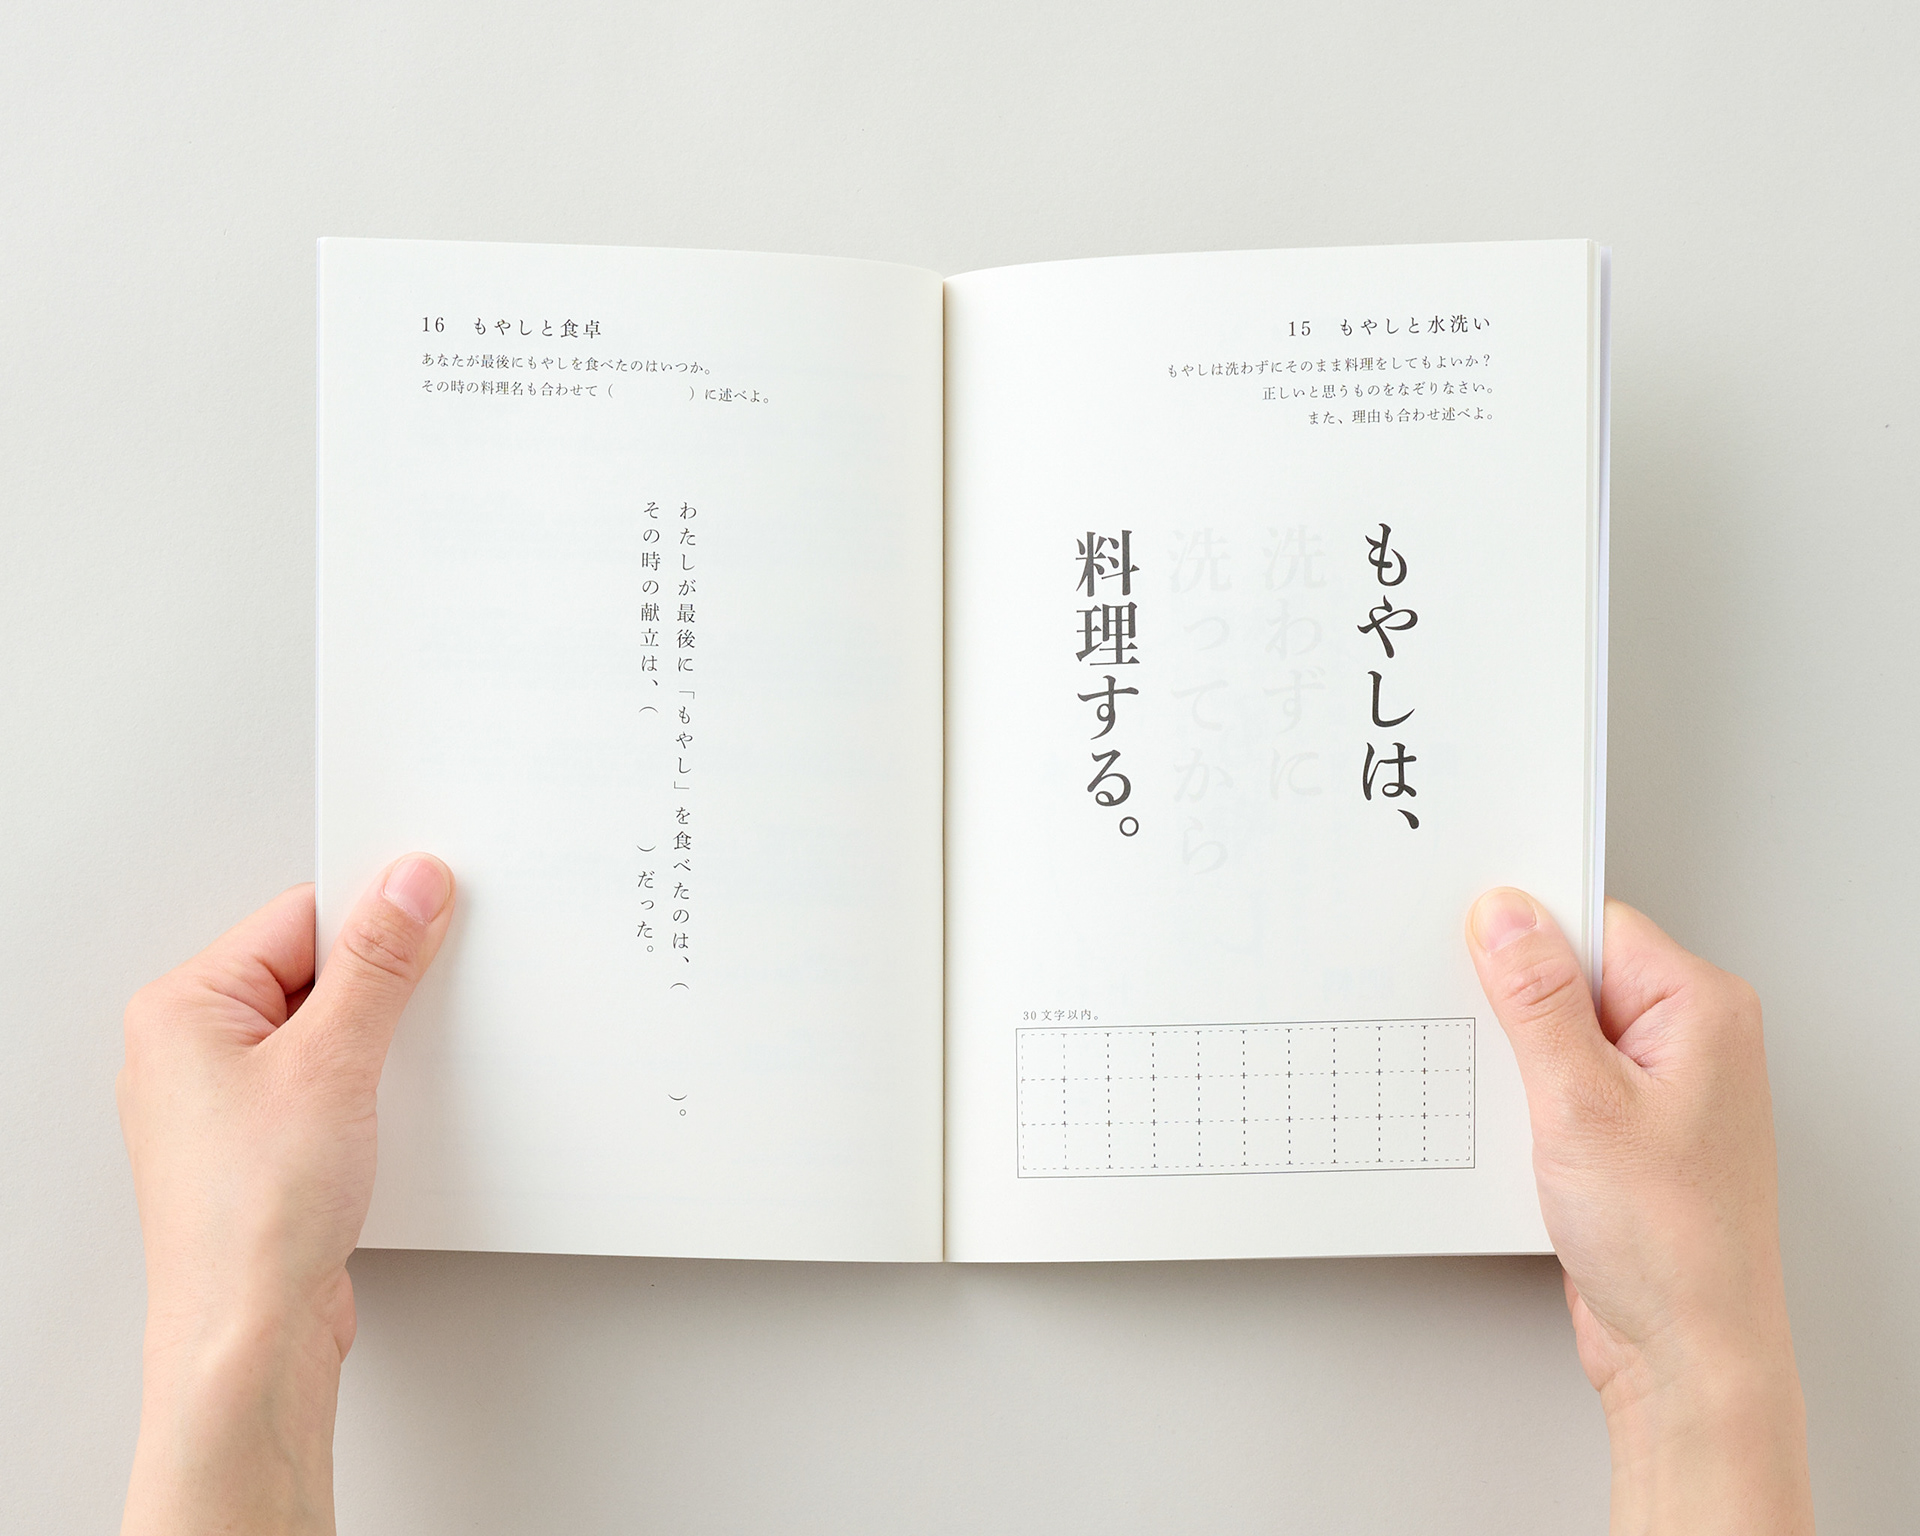 15 もやしと水洗い
もやしは洗わずにそのまま料理をしてもよいか？
正しいと思うものをなぞりなさい。
また、理由も合わせ述べよ。
もやしは、
洗わずに
洗ってから
料理する。
30文字以内。
16 もやしと食卓
あなたが最後にもやしを食べたのはいつか。
その時の料理名も合わせて（　　　　　）に述べよ。
わたしが最後に「もやし」を食べたのは、（　　　　）。
その時の献立は、（　　　　　）だった。